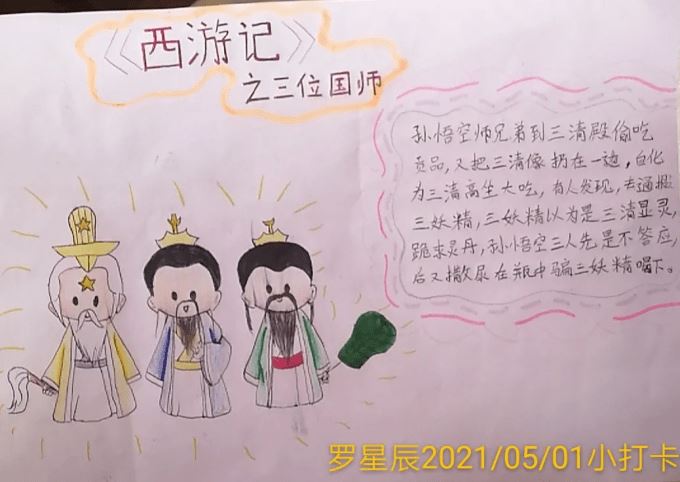 《西游记》
之三位国师
孙悟空师兄弟到三清殿偷吃
贡品,又把三清像扔在一边,自化
为三清高坐大吃,有人发现,去通报
三妖精,三妖精以为是三清显灵,
跪求灵丹,孙悟空三人先是不答应,
后又撒尿在瓶中骗三妖精喝下。
罗星辰2021/05/01小打卡